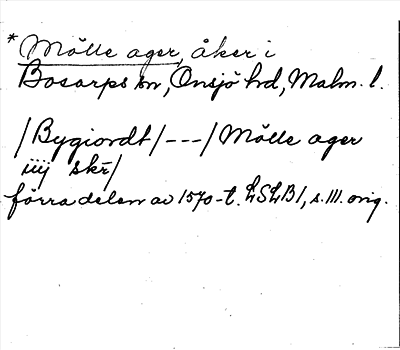 * Mölle ager, åker i
Bosarps sn, Onsjö hd, Malm. l.
/Bygiordt/---/Mölle ager
iiij skr̄/
förra delen av 1570-t. LSLB1, s. 111. orig.